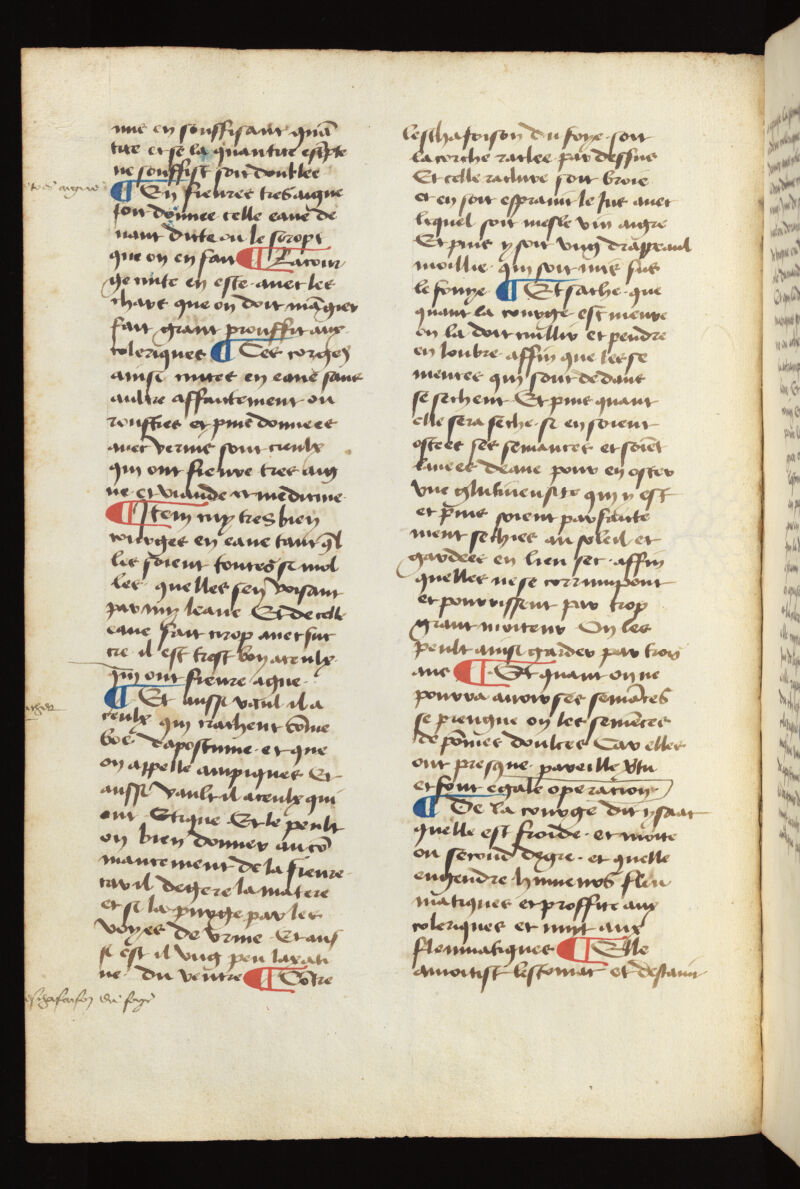 mis en souffisant quā
tite et se la quantite espte
ne souffist soit doublee
¶ En fieures tres ague
soit donnee celle eaue de
uant ditte ou le serop
que on en fait ¶ La cour
ge cuite en este auec les
chars que on doit māgier
fait grant prouffit aux
coleriques ¶ Les corges
ainsi cuites en eaue sans
aultre affaitement ou
rousties et puis donnees
auec verius sont ceulx
qui ont fieure tres aig
ue et viande et medicine
¶ Item cuy tres bien
courges en eaue tant ql
les soient toutes si mol
les quelles sen voisant
parmy leaue Et de celle
eaue fait cirop auec suc
cre il est trest bon a ceulx
qui ont fieure ague
¶ Et aussi vault il a
ceulx qui crachent cōme
boe dapostume et que
on appelle ampiques Et
aussi vault il a ceulx qui
ont Etique Et le peult
on bien donner au cō
mancement de la fieure
car il degere la matere
et si la purge par les
voyes de vrine Et aus
si est il vng peu laxati
ue du ventre ¶ Cōtre
leschafoison du foye soit
la corche raclee par dessus
Et celle raclure soit broie
et en soit espraint le Jus auec
lequel soit mesle vin aigre
Et puis y soit vng drappeaul
moillie qui soit mis sus
le fouye ¶ Et sache que
quant la courge est meure
on la doit cuillir et pendre
en lombre affin que les se
mences qui sont dedans
se sechent Et puis quant
elle sera seche si en soient
ostees ses semances et soiēt
lauees deaue pour en oster
vne glutineusite qui y est
et puis soient parfaite
ment sechies au soleil et
gardees en lieu sec affin
quelles ne se corrumpent
et pourrissent par trop
grant moiteur On les
peult ainsi garder par trois
ans ¶ Et quant on ne
pourra auoir ses semāces
se prengne on les semēces
de pōmes doulces Car elles
ont presque pareille vtu
et font egale operation
¶ De la courge dit ysaac
quelle est froide et moite
ou second degre et quelle
engendre humeurs fleu
matiques et proffite aux
coleriques et nuit aux
fleumatiques ¶ Elle
amoitist lestomac et destaint
tres aigue
eschafoison du foye